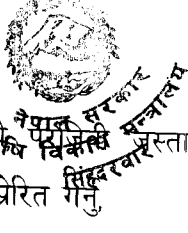 नेपाल सरकार
कृषि विकास मन्त्रालय
सिंहदरबार
प्रस्ता
प्रेरित गर्नु